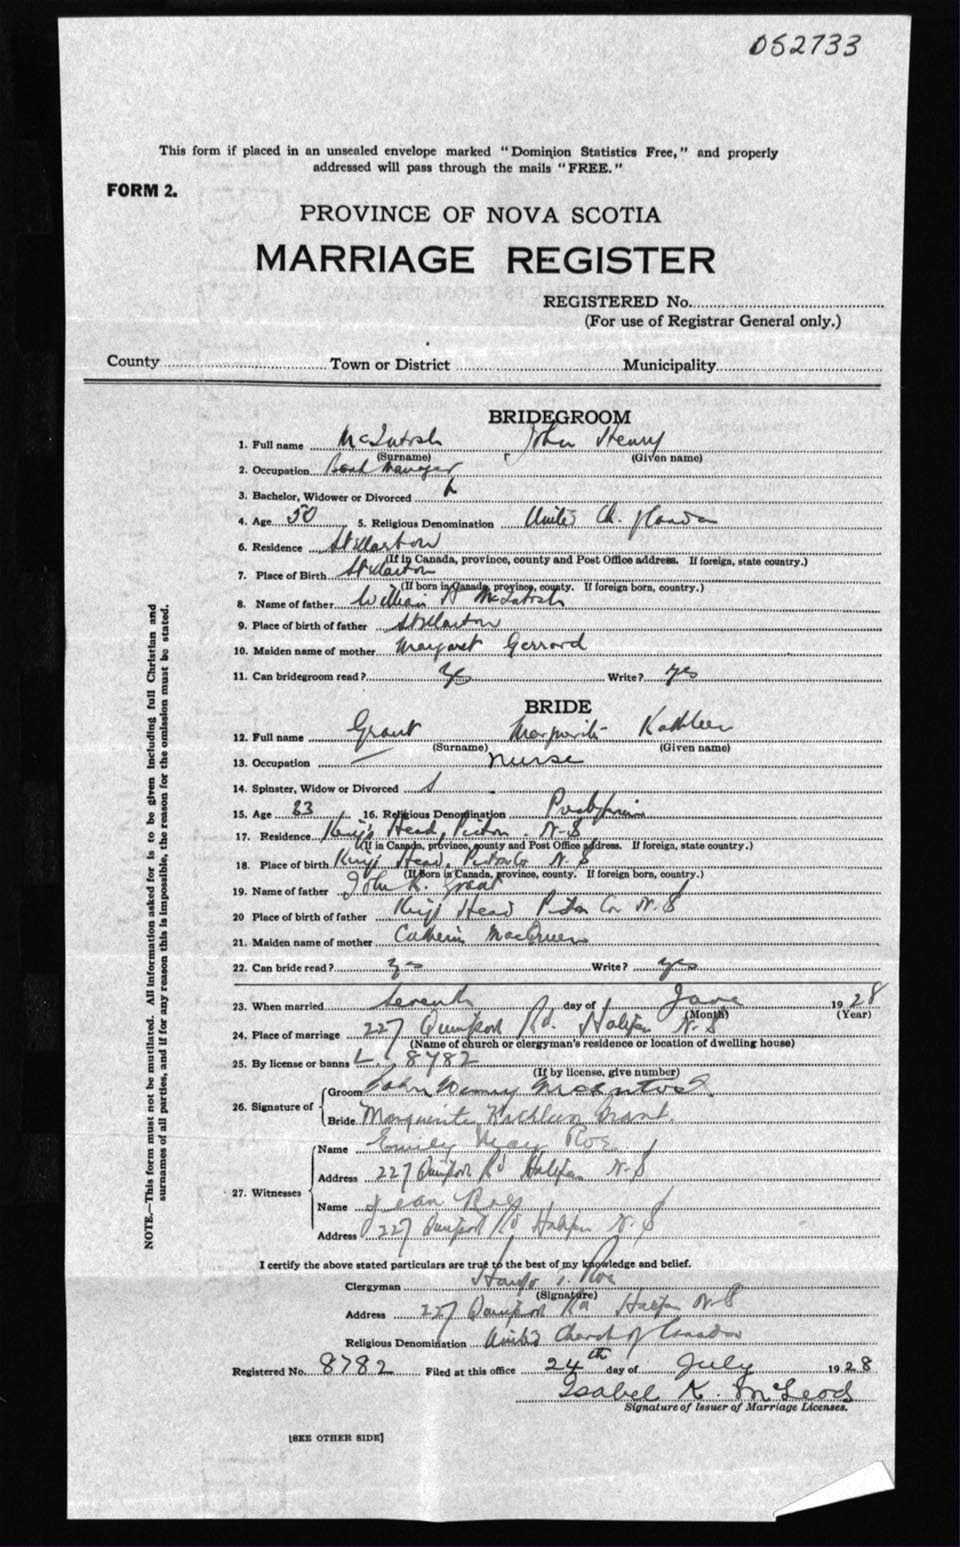 052733
This form if placed in an unsealed envelope marked "Dominion Statistics Free," and properly
addressed will pass through the mails "FREE."
FORM 2.
PROVINCE OF NOVA SCOTIA
MARRIAGE REGISTER
REGISTERED No.
(For use of Registrar General only.)
County Town or District Municipality
BRIDEGROOM
1. Full name McIntosh John Henry
(Surname) (Given name)
2. Occupation Manager
3. Bachelor, Widower or Divorced
4. Age 50 5. Religious Denomination United Ch. of Canada
6. Residence Stellarton
(If in Canada, province, county and Post Office address. If foreign, state country.)
7. Place of Birth Stellarton
(If born in Canada, province, county. If foreign born, country.)
8. Name of father William H McIntosh
9. Place of birth of father Stellarton
10. Maiden name of mother Margaret Gerrard
11. Can bridegroom read? Yes Write? yes
BRIDE
12. Full name Grant Marguerite Kathleen
(Surname) (Given name)
13. Occupation nurse
14. Spinster, Widow or Divorced S
15. Age 16. Religious Denomination Presbyterian
17. Residence King's Head, Pictou. N.S
(If in Canada, province, county and Post Office address. If foreign, state country.)
18. Place of birth King's Head, Pictou Co N.S
(If born in Canada, province, county. If foreign born, country.)
19. Name of father John Grant
20 Place of birth of father King's Head Pictou Co N.S
21. Maiden name of mother Catherine
22. Can bride read? yes Write? yes
23. When married Seventh day of 1928
(Month) (Year)
24. Place of marriage 227 Quinpool Rd. Halifax N.S
(Name of church or clergyman's residence or location of dwelling house)
25. By license or banns L. 8782
(If by license, give number)
26. Signature of
Groom John Henry McIntosh
Bride Marguerite Kathleen Grant.
27. Witnesses
Name Emily May Roe
Address 227 Quinpool Rd Halifax N.S
Name Jean Roe
Address 227 Quinpool Rd Halifax N.S
I certify the above stated particulars are true to the best of my knowledge and belief.
Clergyman Roe
(Signature)
Address 227 Quinpool Rd Halifax N.S
Religious Denomination United Church of Canada
Registered No. 8782 Filed at this office 24th day of July 1928
Isabel K. McLeod
Signature of Issuer of Marriage Licenses.
[SEE OTHER SIDE]
NOTE.—This form must not be mutilated. All information asked for is to be given including full Christian and
surnames of all parties, and if for any reason this is impossible, the reason for the omission must be stated.